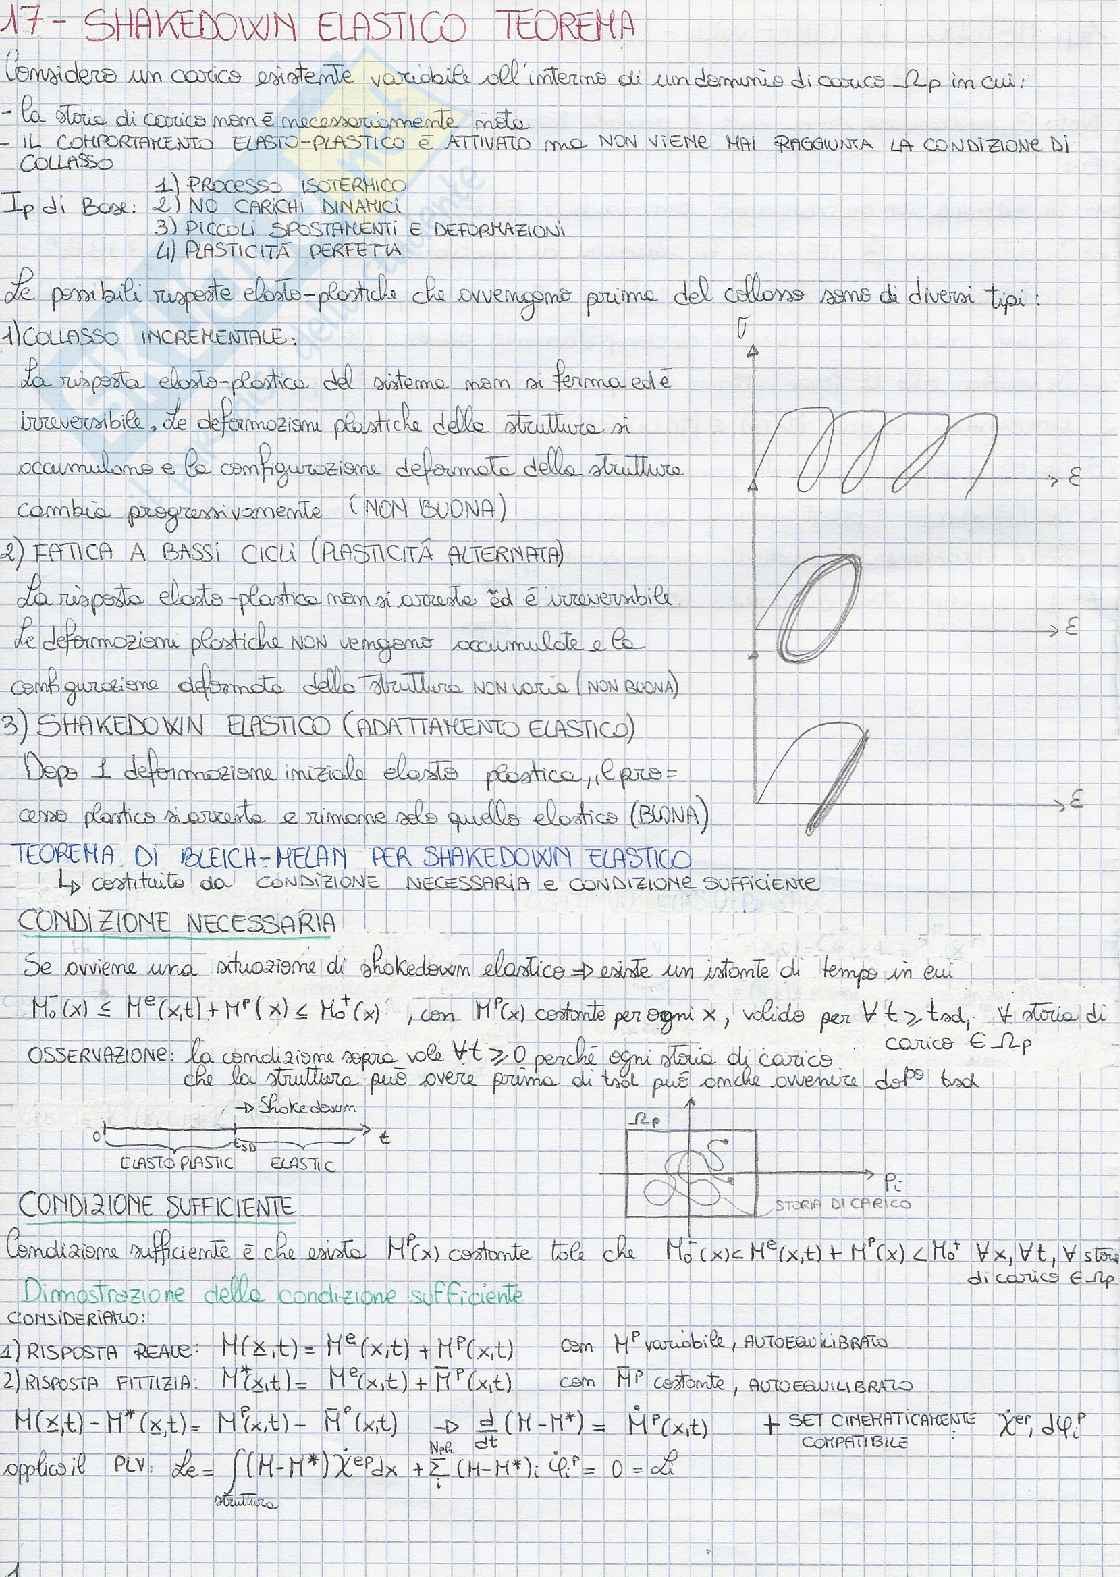 17- SHAKEDOWN ELASTICO TEOREMA
Considero un carico esistente variabile all'interno di un dominio di carico Ωp in cui:
- la storia di carico non è necessariamente nota
- IL COMPORTAMENTO ELASTO-PLASTICO È ATTIVATO ma NON VIENE MAI RAGGIUNTA LA CONDIZIONE DI
COLLASSO
1) PROCESSO ISOTERMICO
Ip di Base: 2) NO CARICHI DINAMICI
3) PICCOLI SPOSTAMENTI E DEFORMAZIONI
4) PLASTICITÀ PERFETTA
Le possibili risposte elasto-plastiche che avvengono prima del collasso sono di diversi tipi:
1) COLLASSO INCREMENTALE:
σ
La risposta elasto-plastica del sistema non si ferma ed è
irreversibile. Le deformazioni plastiche della struttura si
accumulano e la configurazione deformata della struttura
ε
cambia progressivamente (NON BUONA)
2) FATICA A BASSI CICLI (PLASTICITÀ ALTERNATA)
La risposta elasto-plastica non si arresta ed è irreversibile
Le deformazioni plastiche NON vengono accumulate e la
ε
configurazione deformata della struttura NON varia (NON BUONA)
3) SHAKEDOWN ELASTICO (ADATTAMENTO ELASTICO)
Dopo 1 deformazione iniziale elasto plastica, il pro=
cesso plastico si arresta e rimane solo quello elastico (BUONA)
ε
TEOREMA DI BLEICH-MELAN PER SHAKEDOWN ELASTICO
↳ costituito da CONDIZIONE NECESSARIA e CONDIZIONE SUFFICIENTE
CONDIZIONE NECESSARIA
Se avviene una situazione di shakedown elastico ⇒ esiste un istante di tempo in cui
M₀⁻(x) ≤ Mᵉ(x,t) + Mᵖ(x) ≤ M₀⁺(x), con Mᵖ(x) costante per ogni x, valido per ∀t ≥ tsd, ∀ storia di
carico ∈ Ωp
OSSERVAZIONE: la condizione sopra vale ∀t ≥ 0 perché ogni storia di carico
che la struttura può avere prima di tsd può anche avvenire dopo tsd
→ Shakedown
0 tSD t
ELASTO PLASTIC ELASTIC
Ωp
Pi
STORIA DI CARICO
CONDIZIONE SUFFICIENTE
Condizione sufficiente è che esista Mᵖ(x) costante tale che M₀⁻(x) < Mᵉ(x,t) + Mᵖ(x) < M₀⁺ ∀x, ∀t, ∀ stori
di carico ∈ Ωp
Dimostrazione della condizione sufficiente
CONSIDERIAMO:
1) RISPOSTA REALE: M(x,t) = Mᵉ(x,t) + Mᵖ(x,t) con Mᵖ variabile, AUTOEQUILIBRATO
2) RISPOSTA FITTIZIA: M*(x,t) = Mᵉ(x,t) + M̄ᵖ(x,t) con M̄ᵖ costante, AUTOEQUILIBRATO
M(x,t) - M*(x,t) = Mᵖ(x,t) - M̄ᵖ(x,t) → d/dt (M-M*) = Ṁᵖ(x,t) + SET CINEMATICAMENTE COMPATIBILE : χ̇ᵉᵖ, dφᵢᵖ
applico il PLV: Le = ∫struttura (M-M*) χ̇ᵉᵖ dx + Σᵢ (M-M*)ᵢ φ̇ᵢᵖ = 0 = Li